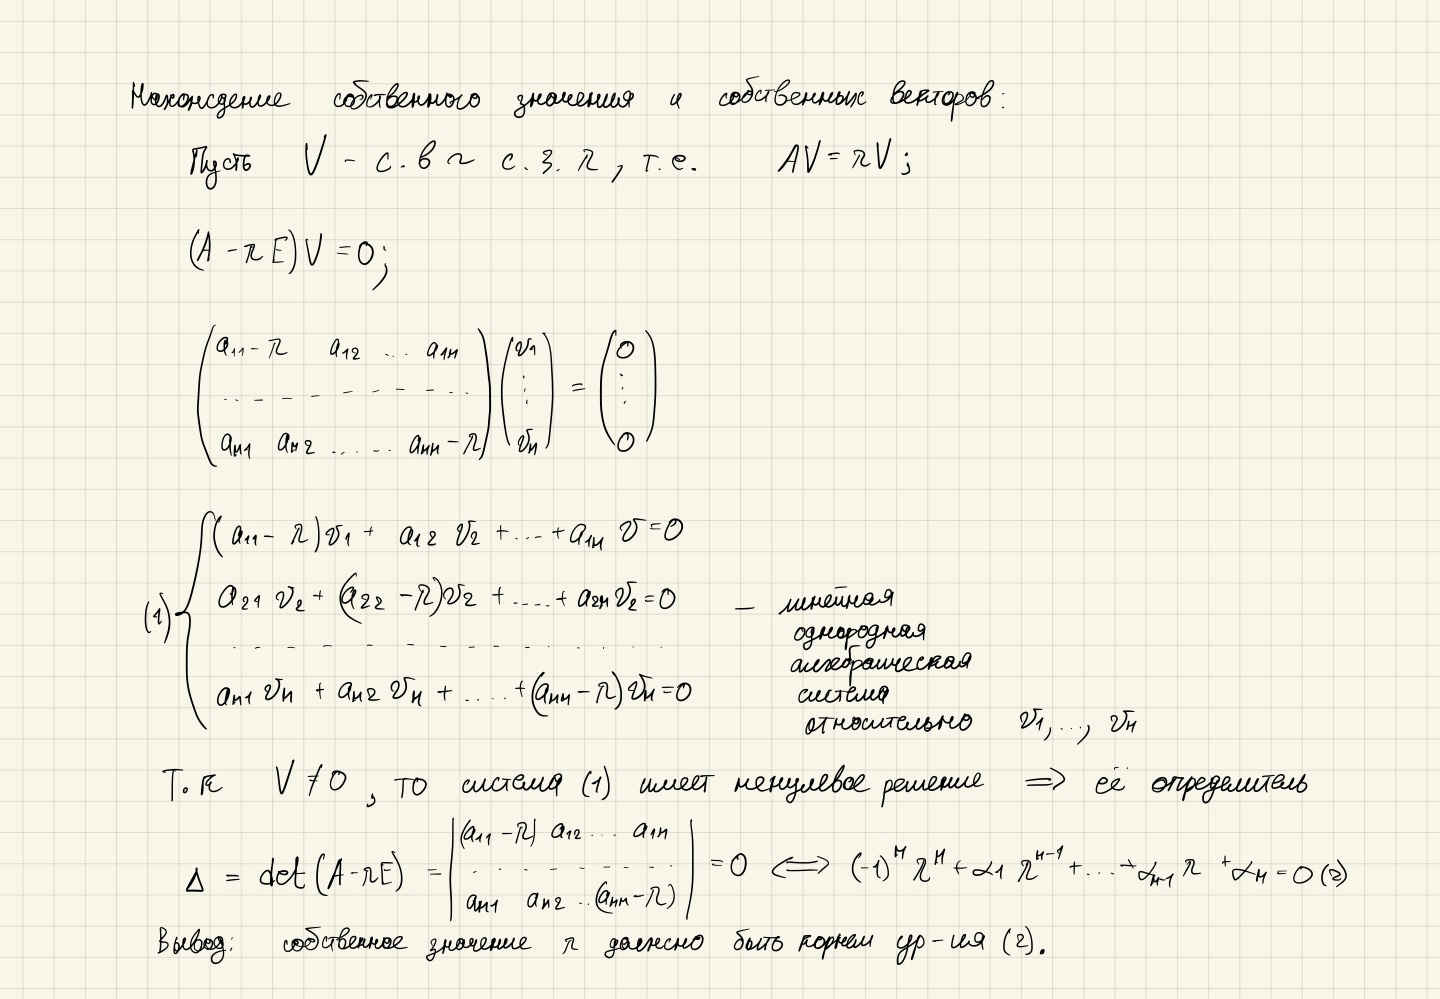 Нахождение собственного значения и собственных векторов:
Пусть V - с.в ~ с.з. λ, т.е. AV = λV;
(A - λE)V = 0;
a₁₁ - λ a₁₂ ... a₁ₙ v₁ 0
. . . . . . . . . ⋮ = ⋮
aₙ₁ aₙ₂ ...... aₙₙ - λ vₙ 0
(a₁₁ - λ)v₁ + a₁₂ v₂ + ... + a₁ₙ v = 0
(1) a₂₁ v₂ + (a₂₂ - λ)v₂ + .... + a₂ₙ v₂ = 0 — линейная
однородная
. . . . . . . . . . . . .
алгебраическая
aₙ₁ vₙ + aₙ₂ vₙ + .... + (aₙₙ - λ)vₙ = 0 система
относительно v₁, ..., vₙ
Т.к V ≠ 0, то система (1) имеет ненулевое решение => её определитель
Δ = det(A - λE) = |(a₁₁ - λ) a₁₂ ... a₁ₙ . . . . . . . . aₙ₁ aₙ₂ ..(aₙₙ - λ)| = 0 <=> (-1)ⁿ λⁿ + α₁ λⁿ⁻¹ + ... + αₙ₋₁ λ + αₙ = 0 (2)
Вывод: собственное значение λ должно быть корнем ур-ия (2).